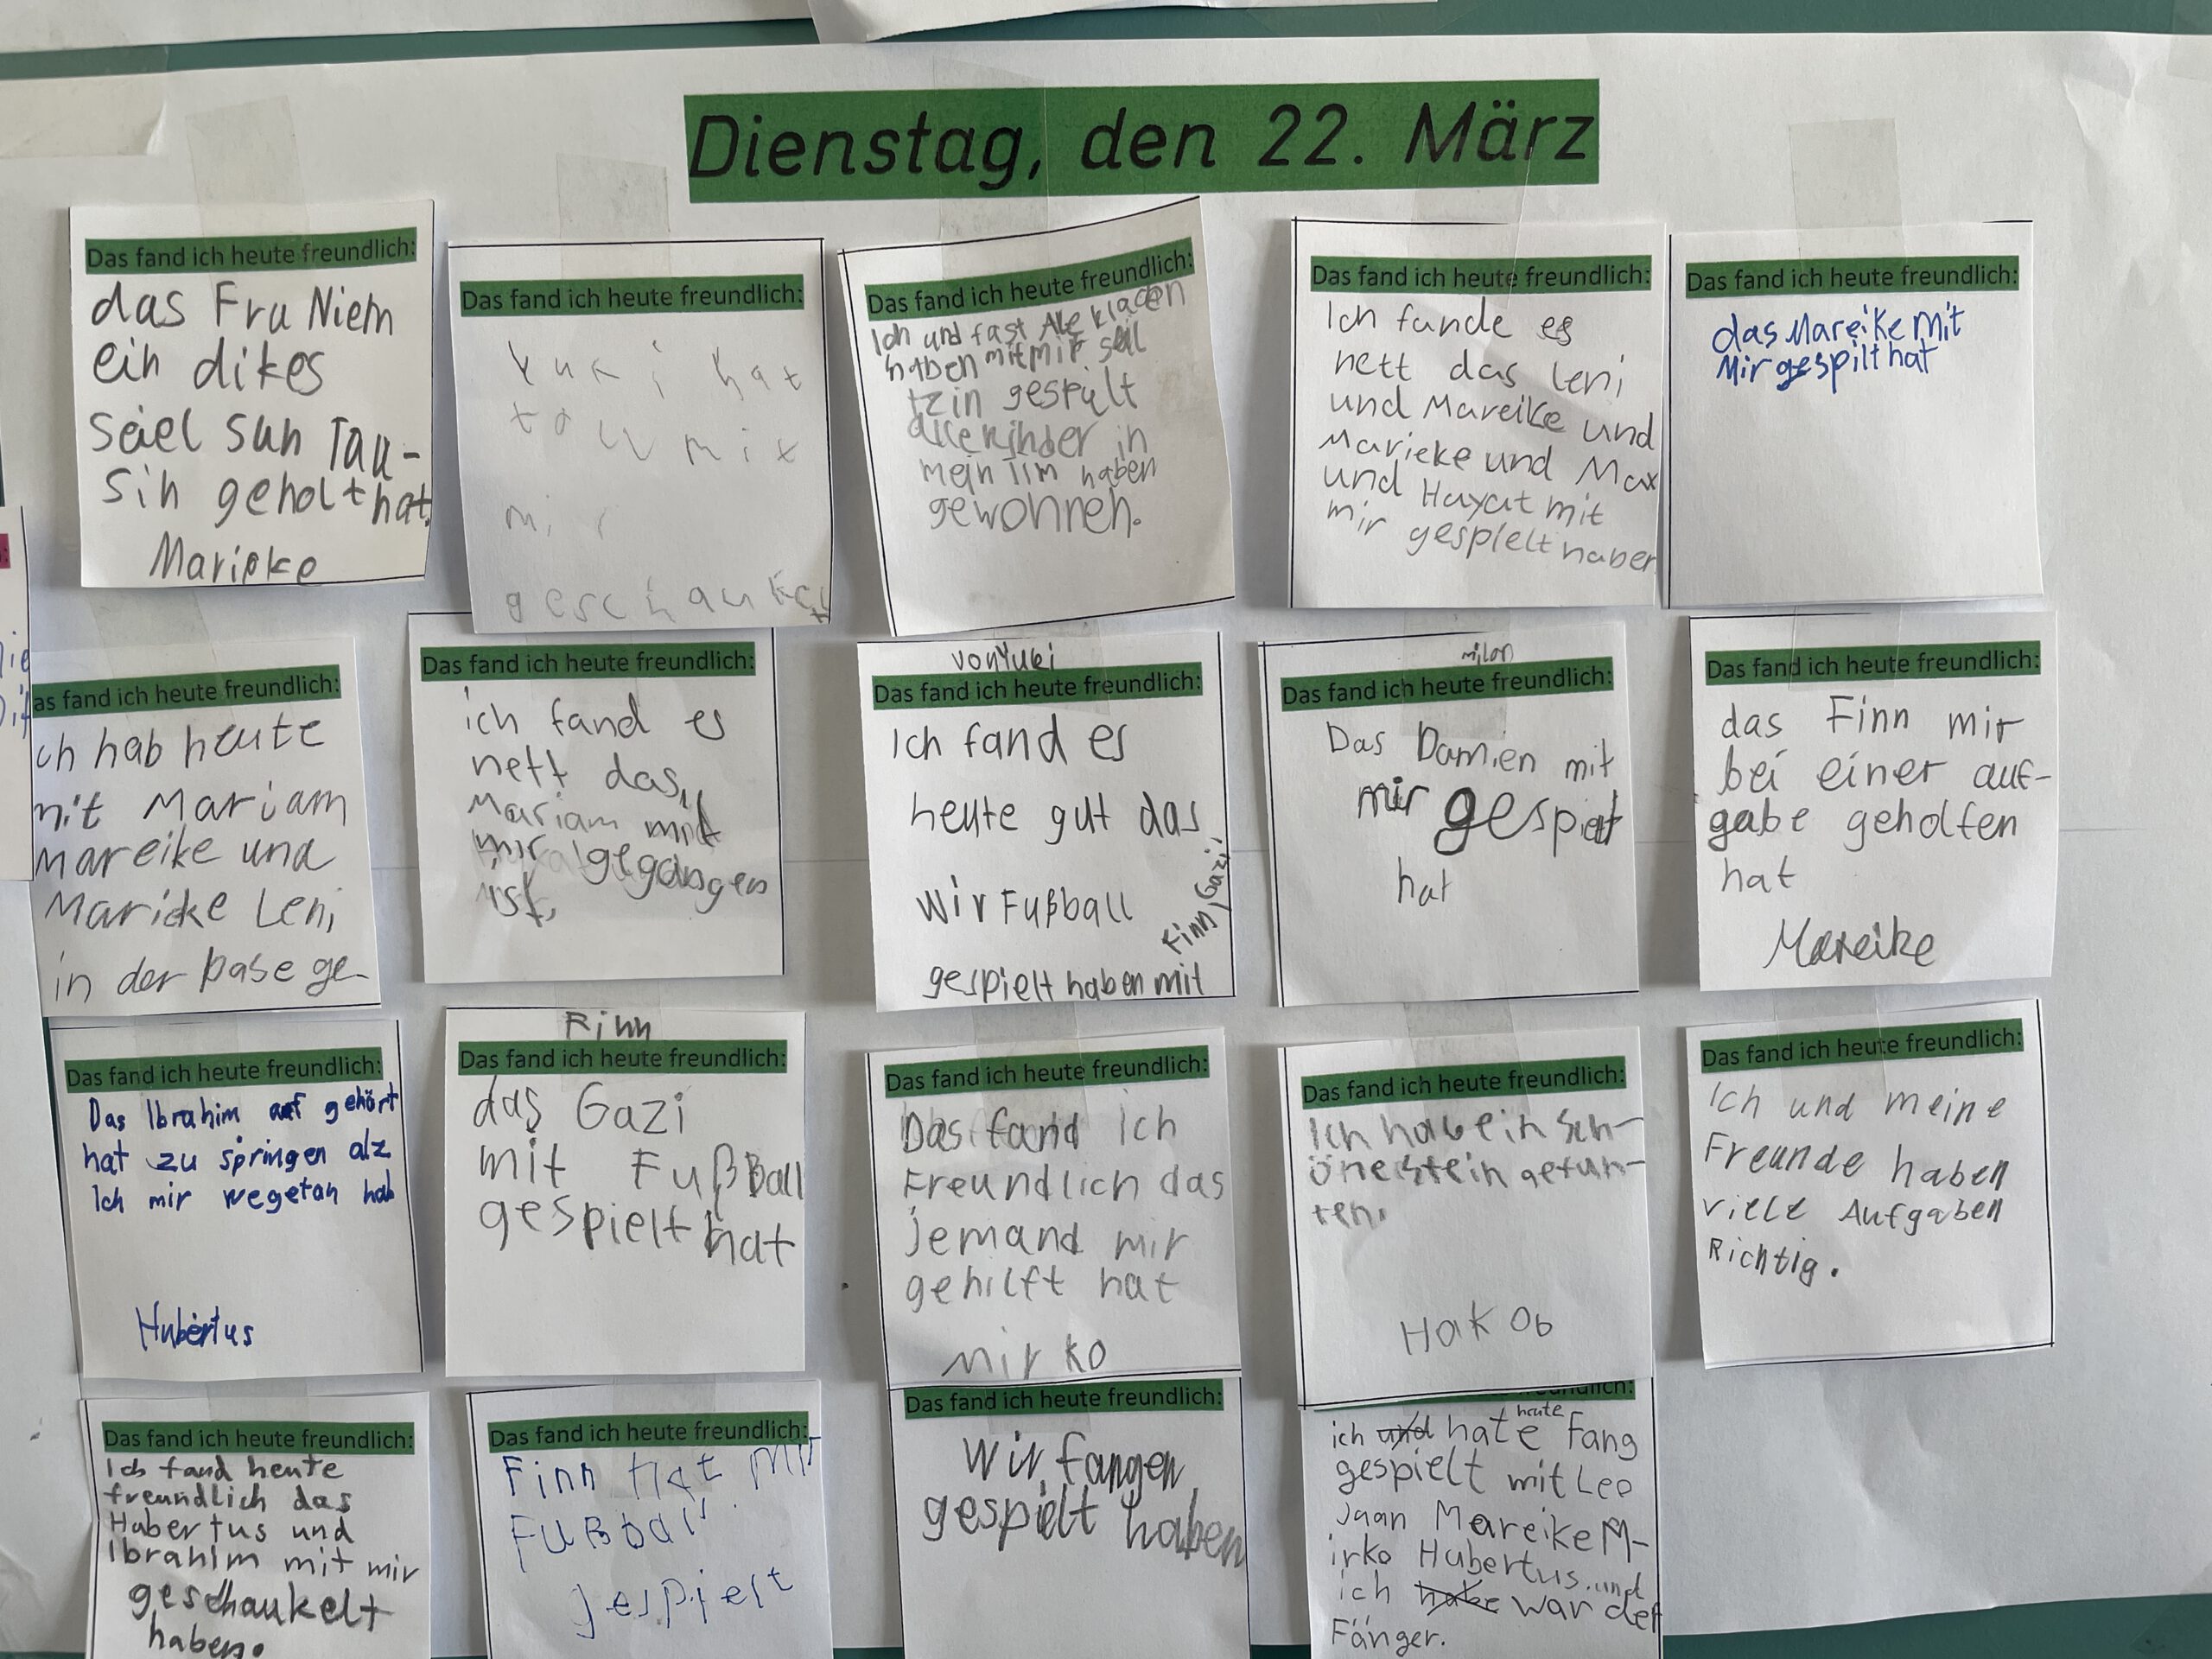 Dienstag, den 22. März
Das fand ich heute freundlich:
das Frau Niem
ein dikes
seiel sun Tau-
sin geholt hat.
Marieke
Das fand ich heute freundlich:
Yuki hat
toll mit
mir
geschaukelt
Das fand ich heute freundlich:
Ich und fast Ale kladen
haben mit mir seil
tzin gespült
alle kinder in
mein Tim haben
gewonnen.
Das fand ich heute freundlich:
Ich fande es
nett das Leni
und Mareike und
Marieke und Max
und Hayat mit
mir gespielt haben
Das fand ich heute freundlich:
das Mareike mit
Mir gespilt hat
as fand ich heute freundlich:
ch hab heute
mit Mariam
Mareike und
Marieke Leni
in der pase ge-
Das fand ich heute freundlich:
ich fand es
nett das
Mariam mit
mir gegangen
ist.
von Yuki
Das fand ich heute freundlich:
Ich fand es
heute gut das
wir Fußball
gespielt haben mit
Finn, Gazi
milan
Das fand ich heute freundlich:
Das Damien mit
mir gespielt
hat
Das fand ich heute freundlich:
das Finn mir
bei einer auf-
gabe geholfen
hat
Mareike
Das fand ich heute freundlich:
Das Ibrahim auf gehört
hat zu springen alz
Ich mir wegetan hab
Hubertus
Finn
Das fand ich heute freundlich:
das Gazi
mit FußBall
gespielt hat
Das fand ich heute freundlich:
Das fand ich
Freundlich das
jemand mir
gehilft hat
mirko
Das fand ich heute freundlich:
Ich habe ein sch-
öne stein gefun-
ten.
Hakob
Das fand ich heute freundlich:
Ich und meine
Freunde haben
viele Aufgaben
Richtig.
Das fand ich heute freundlich:
Ich fand heute
freundlich das
Hubertus und
Ibrahim mit mir
geschaukelt
haben.
Das fand ich heute freundlich:
Finn hat mir
Fußball
gespielt
Das fand ich heute freundlich:
Wir fangen
gespielt haben
ich und hate heute Fang
gespielt mit Leo
Jaan Mareike M-
irko Hubertus und
ich habe war der
Fänger.